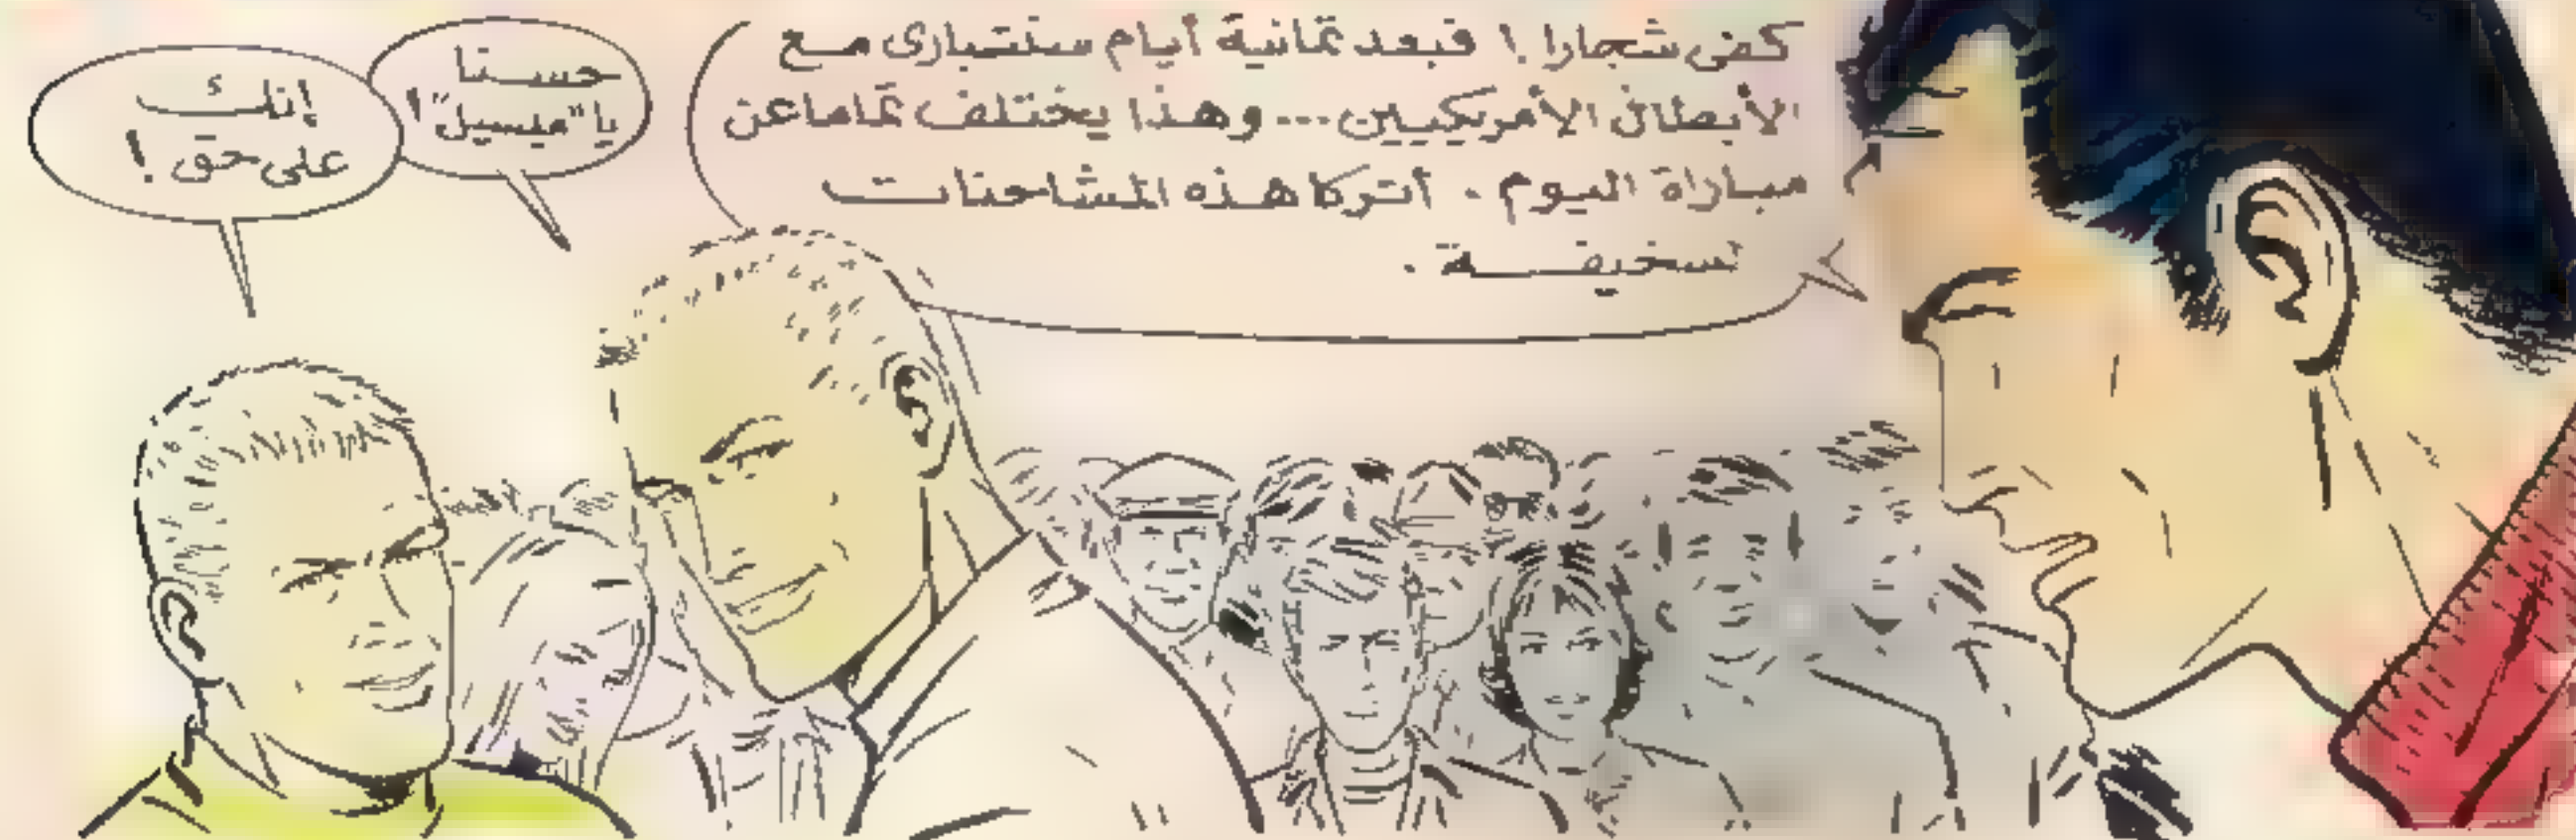 كفى شجارا ! فبعد ثمانية أيام سنتبارى مع
الأبطال الأمريكيين... وهذا يختلف تماما عن
مباراة اليوم . أتركا هذه المشاحنات
السخيفة .
حسنا
يا "ميسيل" !
إنك
على حق !